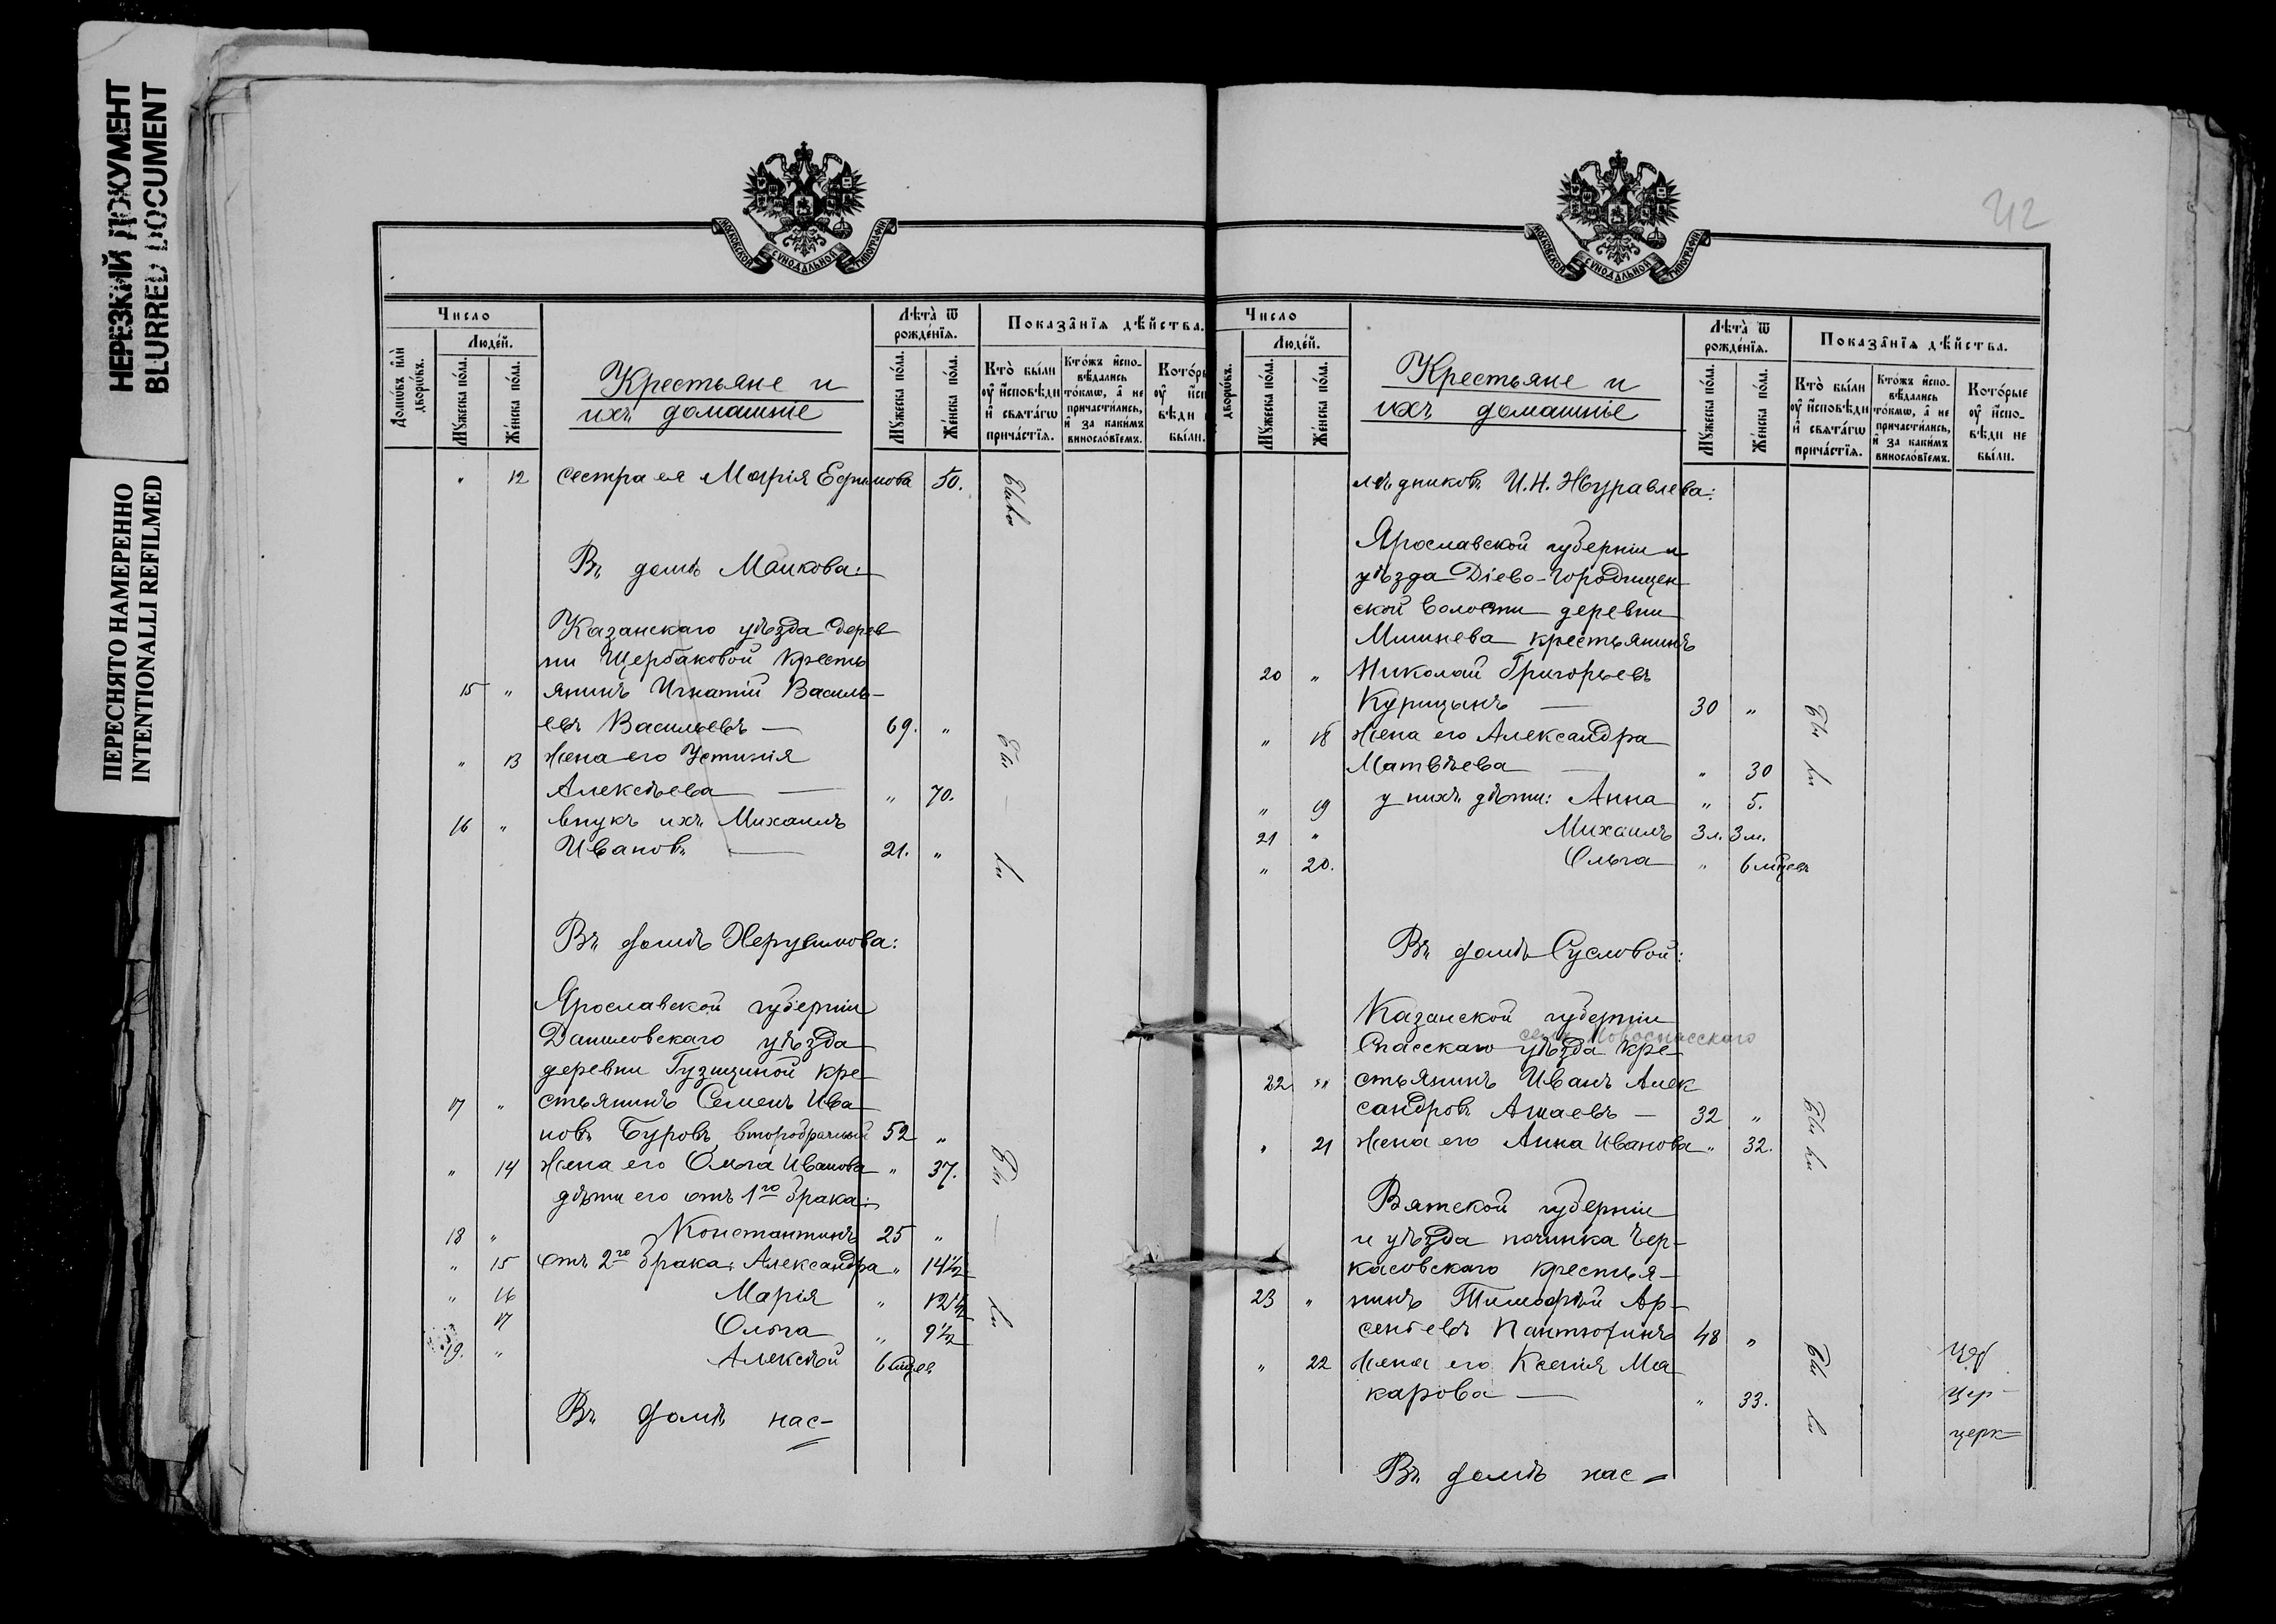 НЕРЕЗКИЙ ДОКУМЕНТ
BLURRED DOCUMENT
ПЕРЕСНЯТО НАМЕРЕННО
INTENTIONALLI REFILMED
МОСКОВСКОЙ СУНОДАЛЬНОЙ ТИПОГРАФІИ
Число
Людей.
Домовъ или дворовъ.
Мужеска пола.
Женска пола.
Крестьяне и
ихъ домашніе
Лѣта ѿ рожденія.
Мужеска пола.
Женска пола.
Показанія дѣйства.
Кто были оу исповѣди и святаго причастія.
Ктожъ исповѣдались токмо, а не причастились, и за какимъ винословіемъ.
" 12 сестра ея Марія Ефимова 50. Была
Въ домѣ Маикова:
Казанскаго уѣзда дерев
ни Щербаковой кресть
15 " янинъ Игнатій Василь-
евъ Васильевъ — 69. "
" 13 жена его Устинія
Алексѣева — " 70.
16 " внукъ ихъ Михаилъ
Ивановъ — 21. "
Бы — ли
Въ домѣ Херувимова:
Ярославской губерніи
Даниловскаго уѣзда
деревни Гузициной кре
17 " стьянинъ Семенъ Ива
новъ Буровъ, второбрачный 52 "
" 14 жена его Ольга Иванова " 37.
дѣти его отъ 1го брака:
18 " Константинъ 25 "
" 15 отъ 2го брака: Александра " 14½
" 16 Марія " 12½
17 Ольга " 9½
19. " Алексѣй 6 мцев
Бы — ли
Въ домѣ нас-
42
МОСКОВСКОЙ СУНОДАЛЬНОЙ ТИПОГРАФІИ
Число
Людей.
дворовъ.
Мужеска пола.
Женска пола.
Крестьяне и
ихъ домашніе
Лѣта ѿ рожденія.
Мужеска пола.
Женска пола.
Показанія дѣйства.
Кто были оу исповѣди и святаго причастія.
Ктожъ исповѣдались токмо, а не причастились, и за какимъ винословіемъ.
Которые оу исповѣди не были.
лѣдниковъ И.Н. Журавлева:
Ярославской губерніи и
уѣзда Діево-Городищен
ской волости деревни
Мишнева крестьянинъ
20 " Николай Григорьевъ
Курицынъ — 30 "
" 18 жена его Александра
Матвѣева — " 30
" 19 у нихъ дѣти: Анна " 5.
21 " Михаилъ 3 л. 3 м.
" 20. Ольга " 6 мцевъ
Бы ли
Въ домѣ Сусловой:
Казанской губерніи
села Новоспасскаго
Спасскаго уѣзда кре-
22 " стьянинъ Иванъ Алек
сандровъ Ашаевъ — 32 "
" 21 жена его Анна Иванова " 32.
Бы ли
Вятской губерніи
и уѣзда починка Чер-
касовскаго крестья-
23 " нинъ Тимофѣй Ар-
сентьевъ Пантюхинъ 48 "
" 22 жена его Ксенія Ма
карова — " 33.
Бы ли
цер-
церк
Въ домѣ нас-